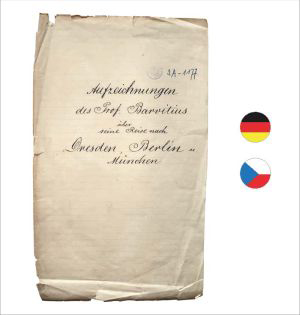 AA-1177
Aufzeichnungen
des Prof. Barvitius
über
seine Reise nach
Dresden, Berlin u
München